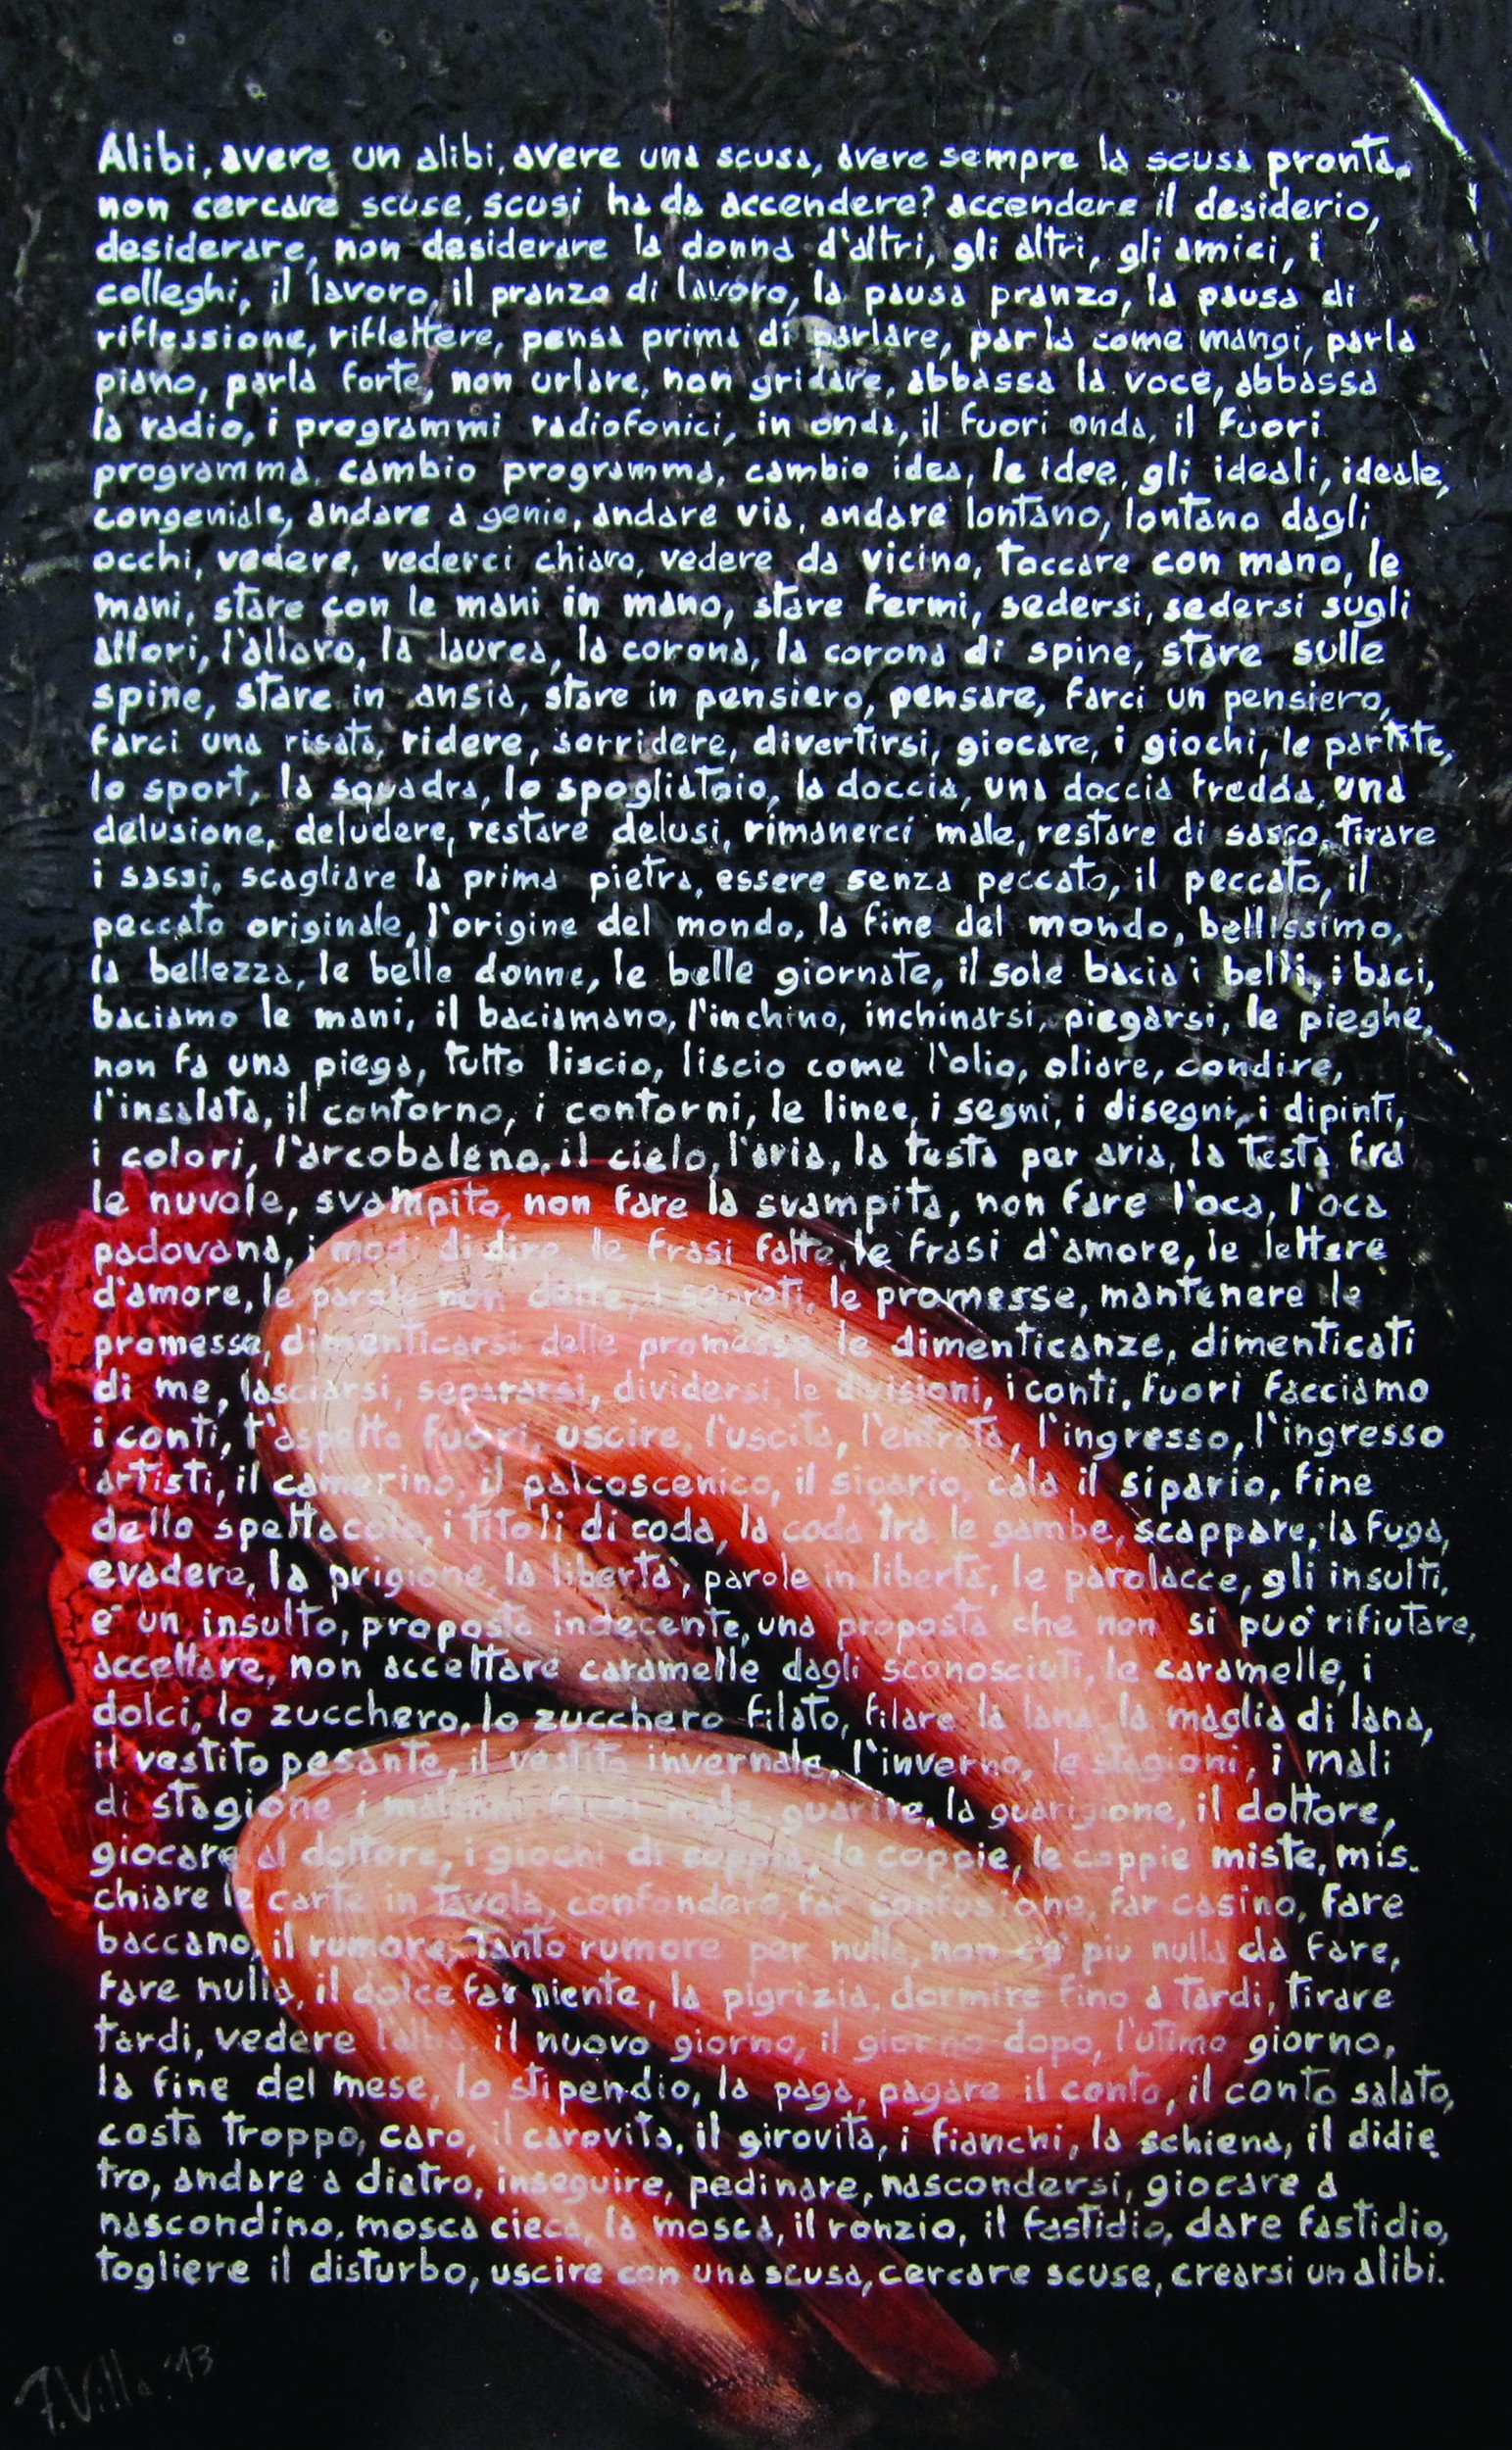 Alibi, avere un alibi, avere una scusa, avere sempre la scusa pronta,
non cercare scuse, scusi ha da accendere? accendere il desiderio,
desiderare, non desiderare la donna d'altri, gli altri, gli amici, i
colleghi, il lavoro, il pranzo di lavoro, la pausa pranzo, la pausa di
riflessione, riflettere, pensa prima di parlare, parla come mangi, parla
piano, parla forte, non urlare, non gridare, abbassa la voce, abbassa
la radio, i programmi radiofonici, in onda, il fuori onda, il fuori
programma, cambio programma, cambio idea, le idee, gli ideali, ideale,
congeniale, andare a genio, andare via, andare lontano, lontano dagli
occhi, vedere, vederci chiaro, vedere da vicino, toccare con mano, le
mani, stare con le mani in mano, stare fermi, sedersi, sedersi sugli
allori, l'alloro, la laurea, la corona, la corona di spine, stare sulle
spine, stare in ansia, stare in pensiero, pensare, farci un pensiero,
farci una risata, ridere, sorridere, divertirsi, giocare, i giochi, le partite,
lo sport, la squadra, lo spogliatoio, la doccia, una doccia fredda, una
delusione, deludere, restare delusi, rimanerci male, restare di sasso, tirare
i sassi, scagliare la prima pietra, essere senza peccato, il peccato, il
peccato originale, l'origine del mondo, la fine del mondo, bellissimo,
la bellezza, le belle donne, le belle giornate, il sole bacia i belli, i baci,
baciamo le mani, il baciamano, l'inchino, inchinarsi, piegarsi, le pieghe,
non fa una piega, tutto liscio, liscio come l'olio, oliare, condire,
l'insalata, il contorno, i contorni, le linee, i segni, i disegni, i dipinti,
i colori, l'arcobaleno, il cielo, l'aria, la testa per aria, la testa fra
le nuvole, svampito, non fare la svampita, non fare l'oca, l'oca
padovana, i modi di dire, le frasi fatte, le frasi d'amore, le lettere
d'amore, le parole non dette, i segreti, le promesse, mantenere le
promesse, dimenticarsi delle promesse, le dimenticanze, dimenticati
di me, lasciarsi, separarsi, dividersi, le divisioni, i conti, fuori facciamo
i conti, t'aspetto fuori, uscire, l'uscita, l'entrata, l'ingresso, l'ingresso
artisti, il camerino, il palcoscenico, il sipario, cala il sipario, fine
dello spettacolo, i titoli di coda, la coda tra le gambe, scappare, la fuga,
evadere, la prigione, la libertà, parole in libertà, le parolacce, gli insulti,
e' un insulto, proposta indecente, una proposta che non si può rifiutare,
accettare, non accettare caramelle dagli sconosciuti, le caramelle, i
dolci, lo zucchero, lo zucchero filato, filare la lana, la maglia di lana,
il vestito pesante, il vestito invernale, l'inverno, le stagioni, i mali
di stagione, i guarire, la guarigione, il dottore,
giocare al dottore, i giochi di coppia, le coppie, le coppie miste, mis-
chiare le carte in tavola, confondere, far confusione, far casino, fare
baccano, il rumore, tanto rumore per nulla, non c'è più nulla da fare,
fare nulla, il dolce far niente, la pigrizia, dormire fino a tardi, tirare
tardi, vedere l'alba, il nuovo giorno, il giorno dopo, l'utimo giorno,
la fine del mese, lo stipendio, la paga, pagare il conto, il conto salato,
costa troppo, caro, il carovita, il girovita, i fianchi, la schiena, il didie
tro, andare a dietro, inseguire, pedinare, nascondersi, giocare a
nascondino, mosca cieca, la mosca, il ronzio, il fastidio, dare fastidio,
togliere il disturbo, uscire con una scusa, cercare scuse, crearsi un alibi.
F. Villa '13